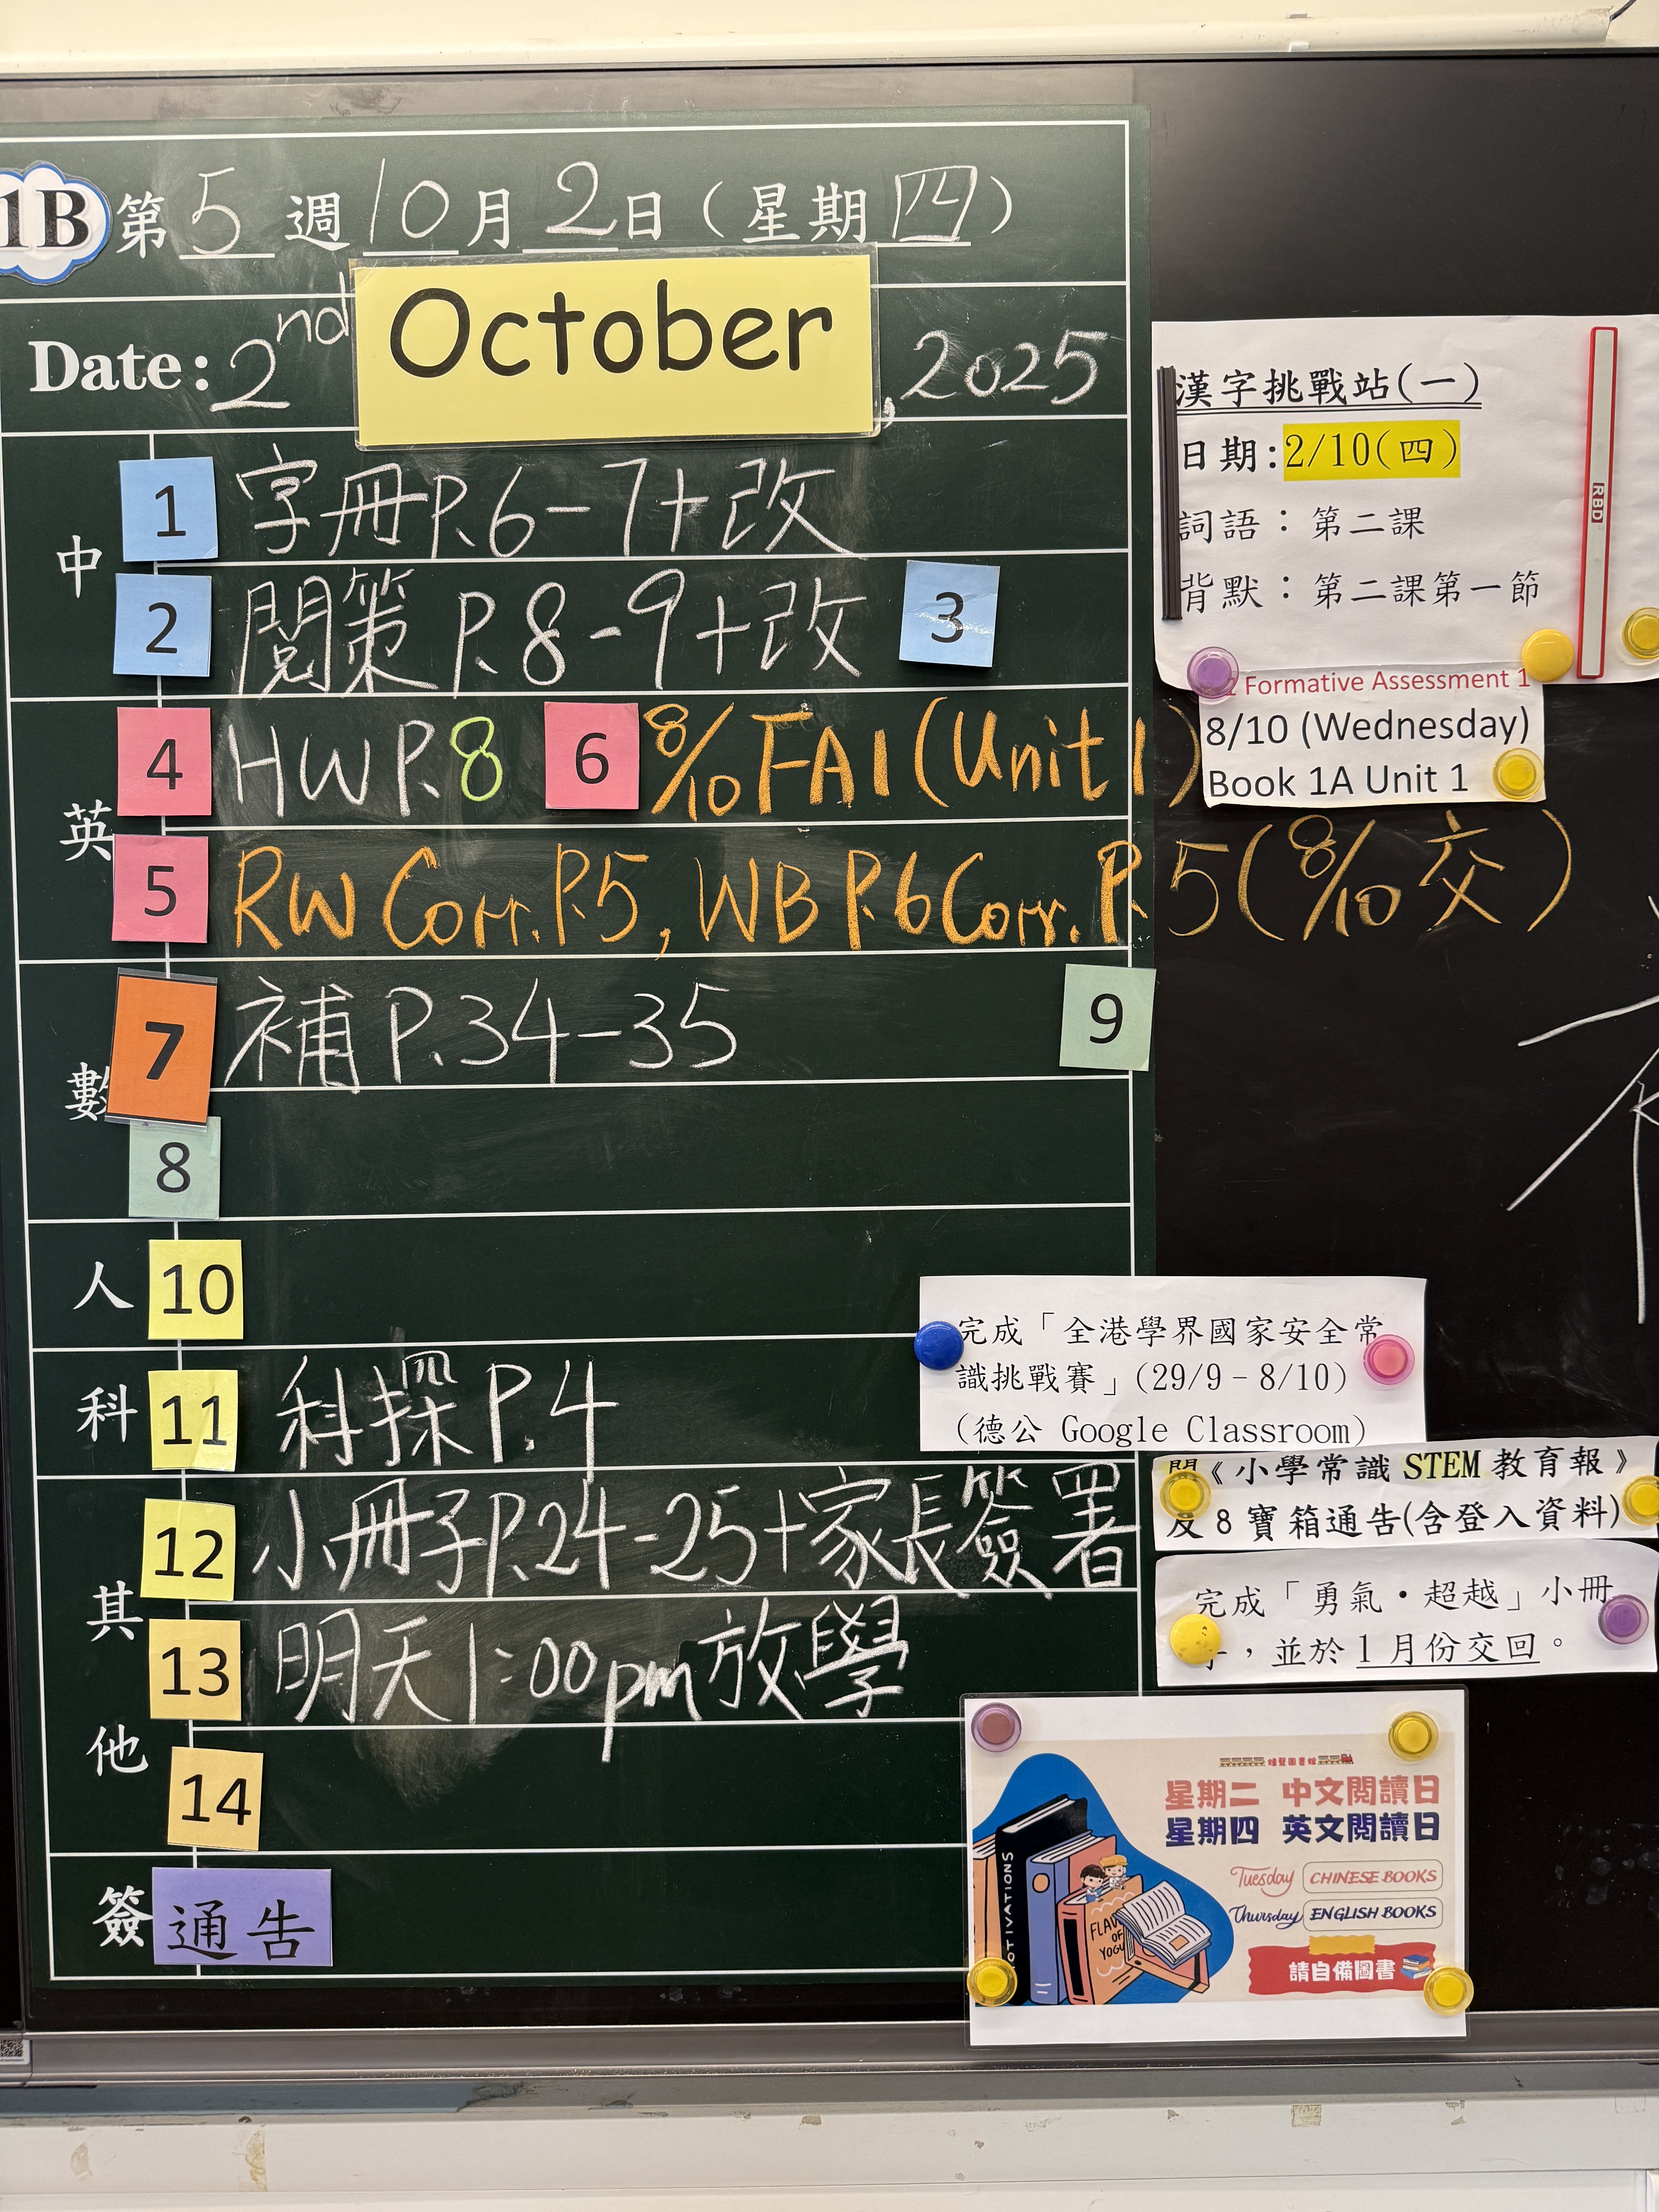 1B 第 5 週 10 月 2 日（星期 四）
Date: 2nd October, 2025
中
1 字冊P.6-7+改
2 閱策 P.8-9+改 3
英
4 HW P.8 6 8/10 FA1 (Unit 1)
5 RW Corr. P.5, WB P.6 Corr. P.5 (8/10 交)
數
7 補 P.34-35 9
8
人 10
科 11 科探 P.4
其他
12 小冊子P.24-25+家長簽署
13 明天1:00pm放學
14
簽 通告
漢字挑戰站(一)
日期:2/10(四)
詞語：第二課
背默：第二課第一節
RBD
Formative Assessment 1
8/10 (Wednesday)
Book 1A Unit 1
完成「全港學界國家安全常
識挑戰賽」(29/9–8/10)
(德公 Google Classroom)
《小學常識 STEM 教育報》
及 8 寶箱通告(含登入資料)
完成「勇氣・超越」小冊
子，並於 1 月份交回。
星期二 中文閱讀日
星期四 英文閱讀日
Tuesday CHINESE BOOKS
Thursday ENGLISH BOOKS
請自備圖書
OTIVATIONS
FLAV
OF
YOGU